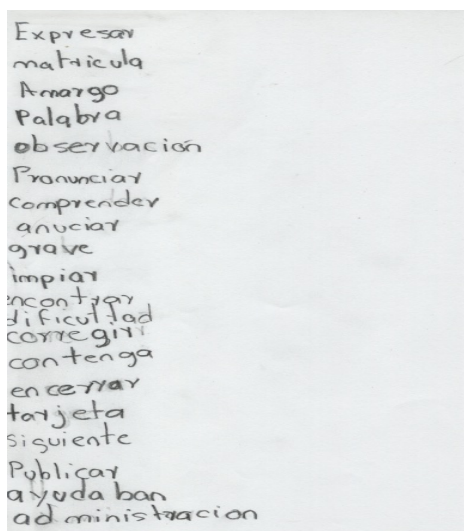 Expresar
matricula
Amargo
Palabra
observación
Pronunciar
comprender
anuciar
grave
impiar
encontrar
dificultad
corregir
contenga
encerrar
tarjeta
siguiente
Publicar
ayudaban
administracion